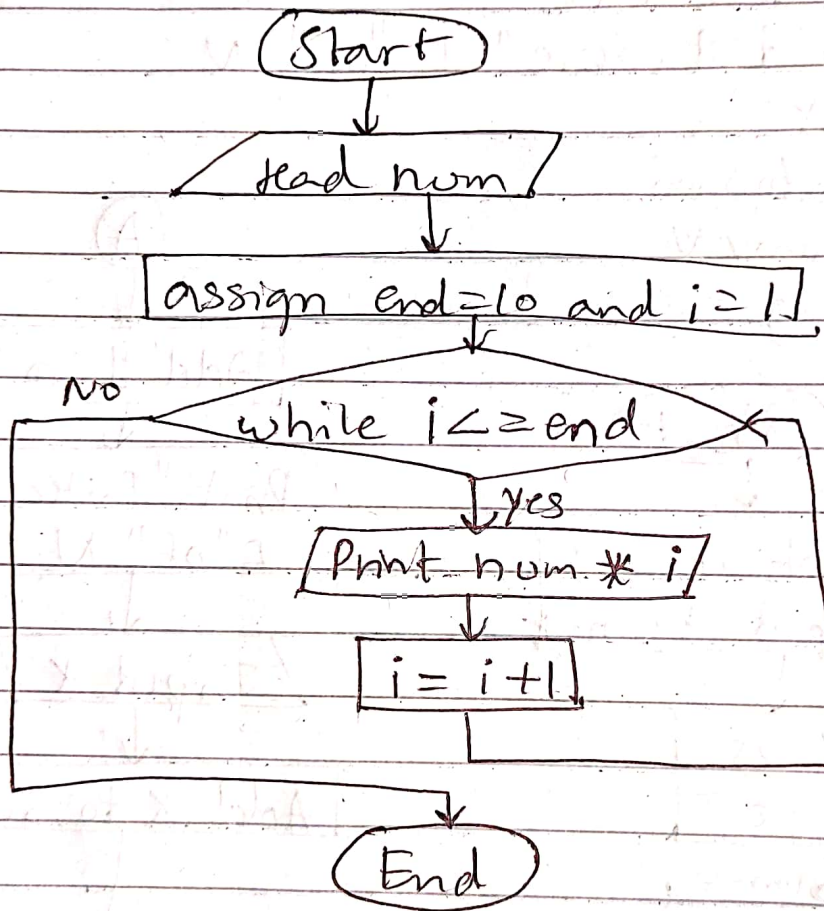 Start
read num
assign end=10 and i=1
No
while i<=end
yes
Print num * i
i = i+1
End